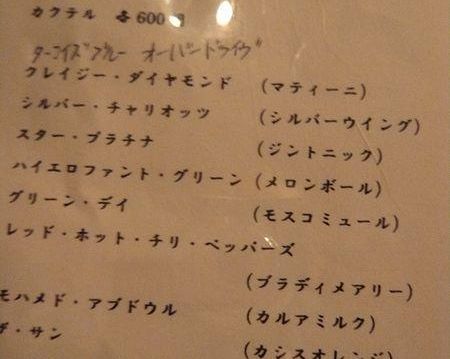 カクテル 各600円
ターコイズブルー オーバードライヴ
クレイジー・ダイヤモンド (マティーニ)
シルバー・チャリオッツ (シルバーウイング)
スター・プラチナ (ジントニック)
ハイエロファント・グリーン (メロンボール)
グリーン・デイ (モスコミュール)
レッド・ホット・チリ・ペッパーズ
(ブラディメアリー)
モハメド・アブドゥル (カルアミルク)
ザ・サン (カシスオレンジ)